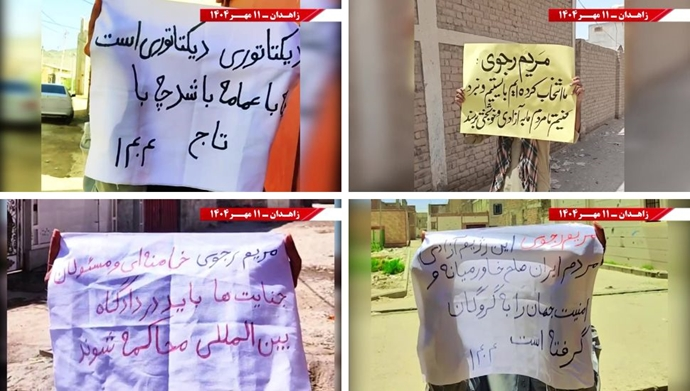 زاهدان ــ ۱۱ مهـر ۱۴۰۴
دیکتاتوری دیکتاتوری است
با عمامه باشد چه با
تاج
۱۴۰۴
زاهدان ــ ۱۱ مهـر ۱۴۰۴
مریم رجوی:
ما انتخاب کرده ایم بایستیم و نبرد
کنیم تا مردم ما به آزادی و خوشبختی برسند
زاهدان ــ ۱۱ مهـر ۱۴۰۴
مریم رجوی خامنه ای و مسئولان
جنایت ها باید در دادگاه
بین المللی محاکمه شوند
زاهدان ــ ۱۱ مهـر ۱۴۰۴
مریم رجوی این رژیم آزادی
مردم ایران صلح خاورمیانه و
امنیت جهان را به گروگان
گرفته است
۱۴۰۴